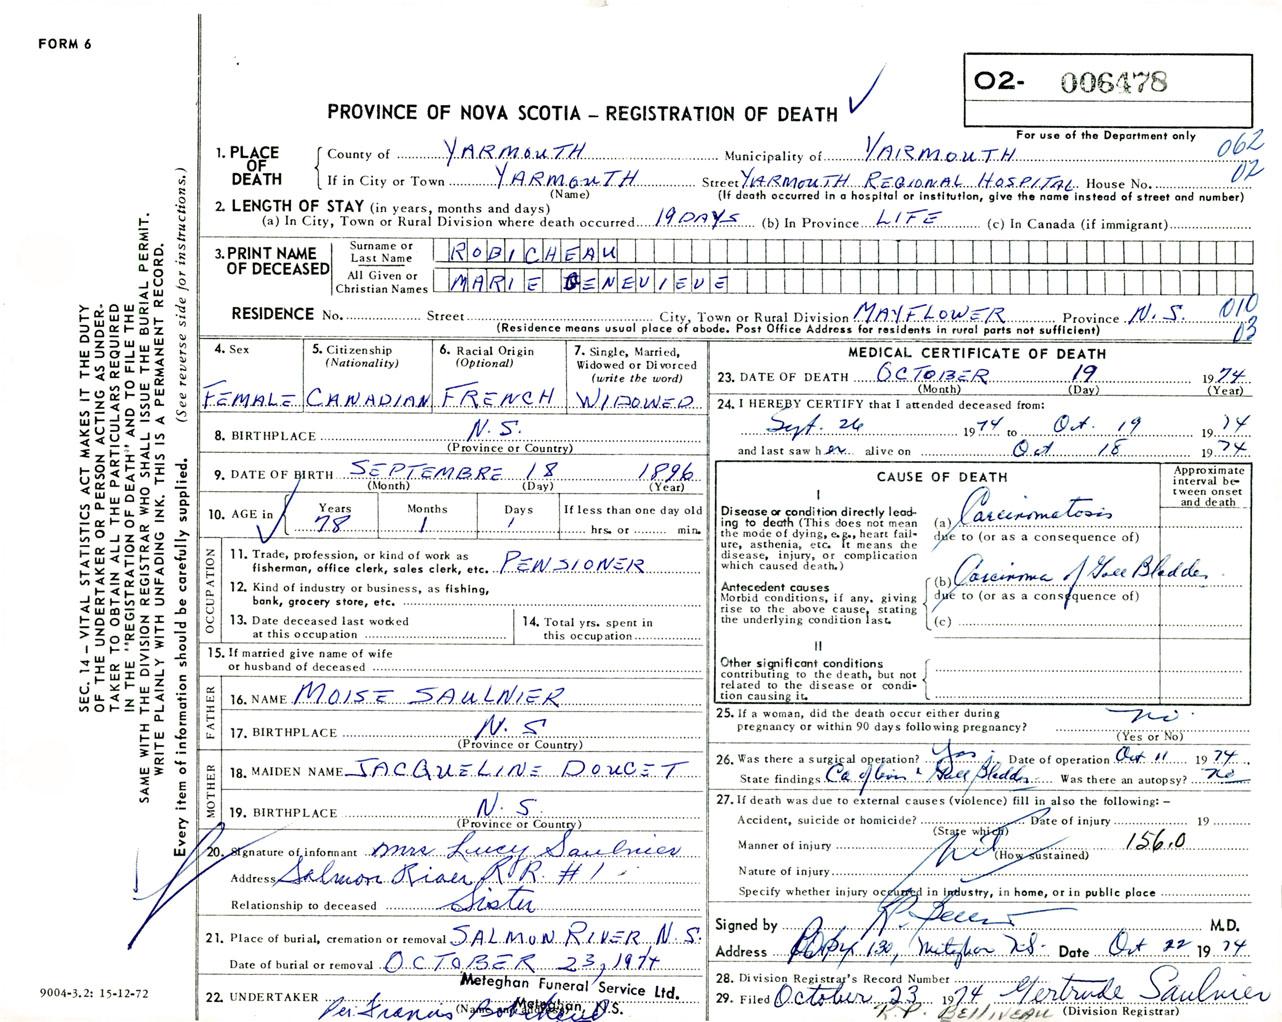 FORM 6
O2- 006478
PROVINCE OF NOVA SCOTIA – REGISTRATION OF DEATH
For use of the Department only
062
02
1. PLACE OF DEATH
County of YARMOUTH Municipality of YARMOUTH
If in City or Town YARMOUTH Street YARMOUTH REGIONAL HOSPITAL House No.
(Name) (If death occurred in a hospital or institution, give the name instead of street and number)
2. LENGTH OF STAY (in years, months and days)
(a) In City, Town or Rural Division where death occurred 19 DAYS (b) In Province LIFE (c) In Canada (if immigrant)
3. PRINT NAME OF DECEASED
Surname or Last Name ROBICHEAU
All Given or Christian Names MARIE GENEVIEVE
RESIDENCE No. Street City, Town or Rural Division MAYFLOWER Province N.S. 010
03
(Residence means usual place of abode. Post Office Address for residents in rural parts not sufficient)
SEC. 14 – VITAL STATISTICS ACT MAKES IT THE DUTY
OF THE UNDERTAKER OR PERSON ACTING AS UNDER-
TAKER TO OBTAIN ALL THE PARTICULARS REQUIRED
IN THE "REGISTRATION OF DEATH" AND TO FILE THE
SAME WITH THE DIVISION REGISTRAR WHO SHALL ISSUE THE BURIAL PERMIT.
WRITE PLAINLY WITH UNFADING INK. THIS IS A PERMANENT RECORD.
Every item of information should be carefully supplied. (See reverse side for instructions.)
4. Sex
FEMALE
5. Citizenship
(Nationality)
CANADIAN
6. Racial Origin
(Optional)
FRENCH
7. Single, Married,
Widowed or Divorced
(write the word)
WIDOWED
8. BIRTHPLACE N.S.
(Province or Country)
9. DATE OF BIRTH SEPTEMBRE 18 1896
(Month) (Day) (Year)
10. AGE in
Years Months Days If less than one day old
78 1 1 hrs. or min.
OCCUPATION
11. Trade, profession, or kind of work as
fisherman, office clerk, sales clerk, etc. PENSIONER
12. Kind of industry or business, as fishing,
bank, grocery store, etc.
13. Date deceased last worked
at this occupation
14. Total yrs. spent in
this occupation
15. If married give name of wife
or husband of deceased
FATHER
16. NAME MOISE SAULNIER
17. BIRTHPLACE N.S
(Province or Country)
MOTHER
18. MAIDEN NAME JACQUELINE DOUCET
19. BIRTHPLACE N.S.
(Province or Country)
20. Signature of informant Mrs Lucy Saulnier
Address Salmon River R.R. #1
Relationship to deceased Sister
21. Place of burial, cremation or removal SALMON RIVER N.S.
Date of burial or removal OCTOBER 23, 1974
Meteghan Funeral Service Ltd.
22. UNDERTAKER (Name and address) Meteghan, N.S.
Per Francis
9004-3.2: 15-12-72
MEDICAL CERTIFICATE OF DEATH
23. DATE OF DEATH OCTOBER 19 1974
(Month) (Day) (Year)
24. I HEREBY CERTIFY that I attended deceased from:
Sept. 26 1974 to Oct. 19 1974
and last saw her alive on Oct 18 1974
CAUSE OF DEATH
Approximate
interval be-
tween onset
and death
I
Disease or condition directly lead-
ing to death (This does not mean
the mode of dying, e.g., heart fail-
ure, asthenia, etc. It means the
disease, injury, or complication
which caused death.)
(a) Carcinomatosis
due to (or as a consequence of)
Antecedent causes
Morbid conditions, if any, giving
rise to the above cause, stating
the underlying condition last.
(b) Carcinoma of Gall Bladder
due to (or as a consequence of)
(c)
II
Other significant conditions
contributing to the death, but not
related to the disease or condi-
tion causing it.
25. If a woman, did the death occur either during
pregnancy or within 90 days following pregnancy? no.
(Yes or No)
26. Was there a surgical operation? Yes. Date of operation Oct 11 1974.
State findings Ca of liver & Gall Bladder Was there an autopsy? no
27. If death was due to external causes (violence) fill in also the following: –
Accident, suicide or homicide? Date of injury 19
(State which)
Manner of injury nil 156.0
(How sustained)
Nature of injury
Specify whether injury occurred in industry, in home, or in public place
Signed by R.P. Belliveau M.D.
Address P.O. Box 130, Meteghan N.S. Date Oct 22 1974
28. Division Registrar's Record Number
29. Filed October 23 1974 Gertrude Saulnier
R.P. BELLIVEAU (Division Registrar)